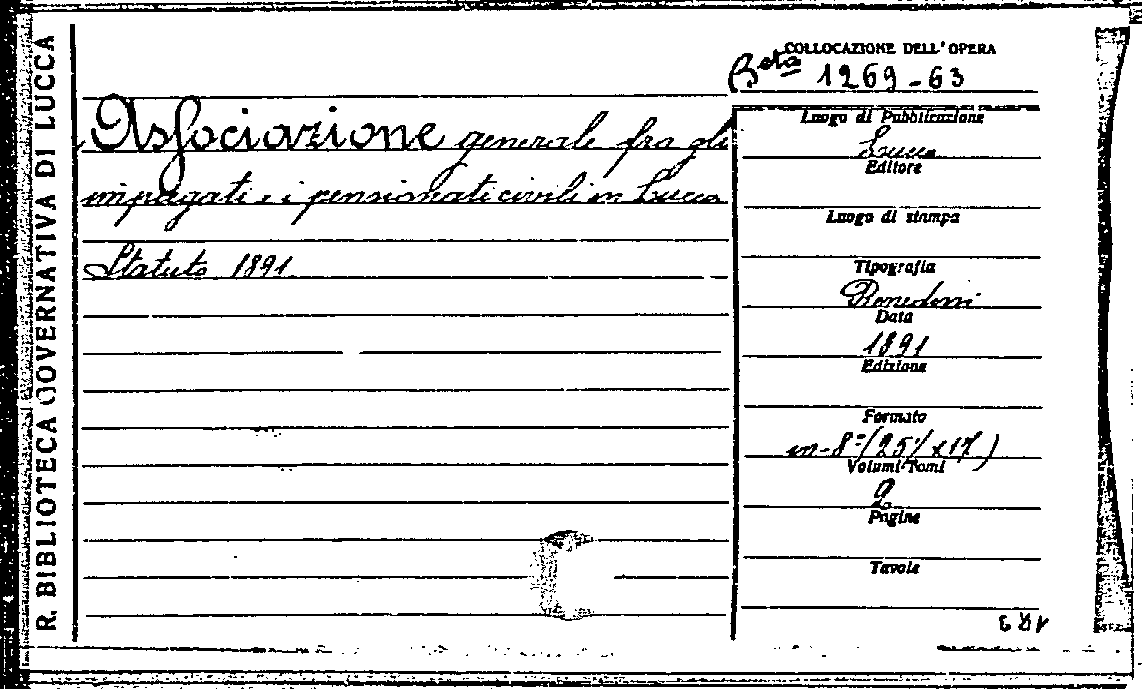 R. BIBLIOTECA GOVERNATIVA DI LUCCA
COLLOCAZIONE DELL' OPERA
Beta 1269-63
Associazione generale fra gli
impiegati e i pensionati civili in Lucca
Statuto 1891
Luogo di Pubblicazione
Lucca
Editore
Luogo di stampa
Tipografia
Data
1891
Edizione
Formato
in-8°
Volumi/Tomi
2
Pagine
Tavole